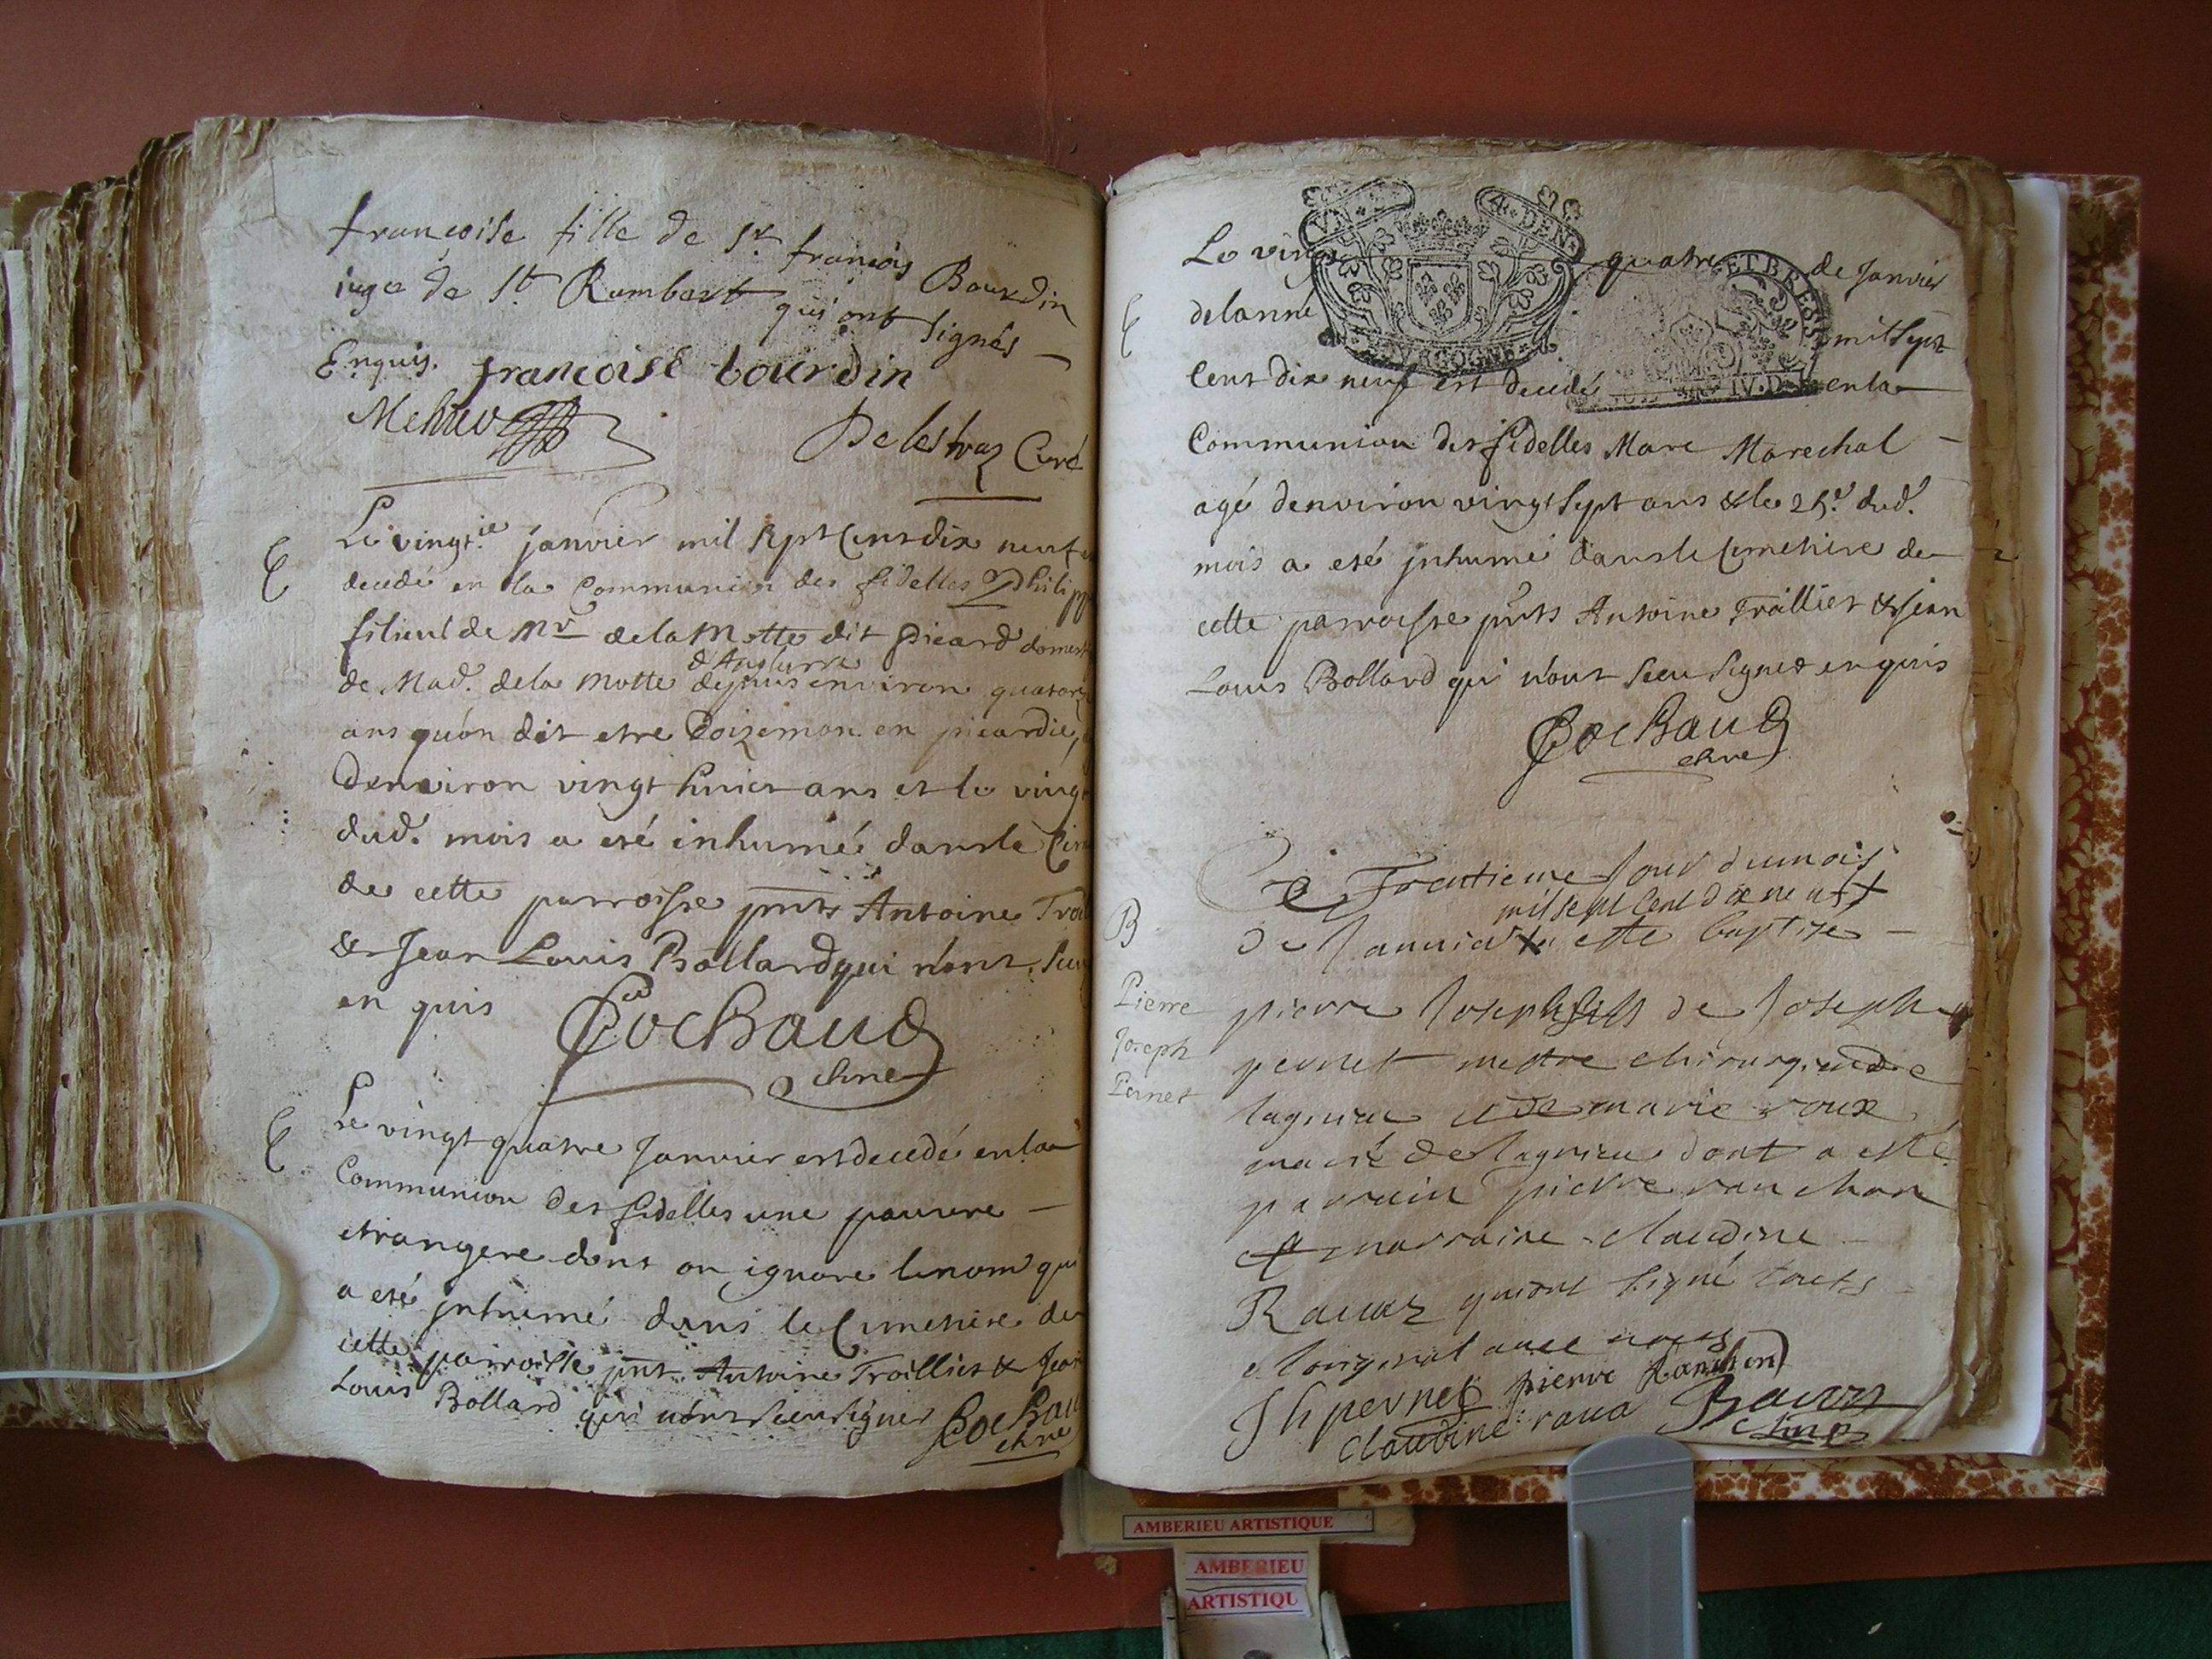 françoise fille de Sr. françois Bourdin
juge de St. Rambert qui ont signés
Enquis. françoise bourdin
Delestraz Curé
E
Le vingt.ie janvier mil sept Cent dix neuf
decedé en la Communion des fidelles Philipp
filieul de Mr de la Motte dit picard domest
d'Angleterre
de Mad. dela Motte depuis environ quator
ans qu'on dit etre en picardie,
denviron vingt huict ans et le vingt
dud. mois a eté inhumé dans le Cim
de cette parroisse pnts Antoine Trol
& Jean Louis Bollard qui n'ont sceu
en quis
Cochaud
chne
E
Le vingt quatre Janvier est decedé en la
Communion des fidelles une pauvre
etrangere dont on ignore le nom qui
a eté inhumé dans le Cimetiere de
cette parroisse pnt Antoine Trollliet & Jean
Louis Bollard qui n'ont sceu signer Cochau
chne
VN 4. DEN.
Le vingt quatre de Janvier
E
delanné mil sept
ET BRESSE
BOVRGOGNE
IV. D
Cent dix neuf est decedé en la
Communion des fidelles Marc Marechal
agé denviron vingt sept ans & le 25.e dud.
mois a eté inhumé dans le Cimetiere de
cette parroisse pnts Antoine Trollliet & Jean
Louis Bollard qui n'ont sceu signer enquis
Cochaud
chne
Le Trentieme Jour du mois
mil sept Cent dix neuf
B
de Janvier a esté baptisé
Pierre
Joseph
Pernet
pierre Joseph fils de Joseph
pernet mestre chirurgien de
lagnieu et de marie roux
mariés de lagnieu dont a esté
parrain pierre ranchon
et marraine claudine
Ravaz qui ont signé touts
a l'original avec nous
Jh pernet pierre Ranchon
claudine rava Ravaz
chne
AMBERIEU ARTISTIQUE
AMBERIEU
ARTISTIQU